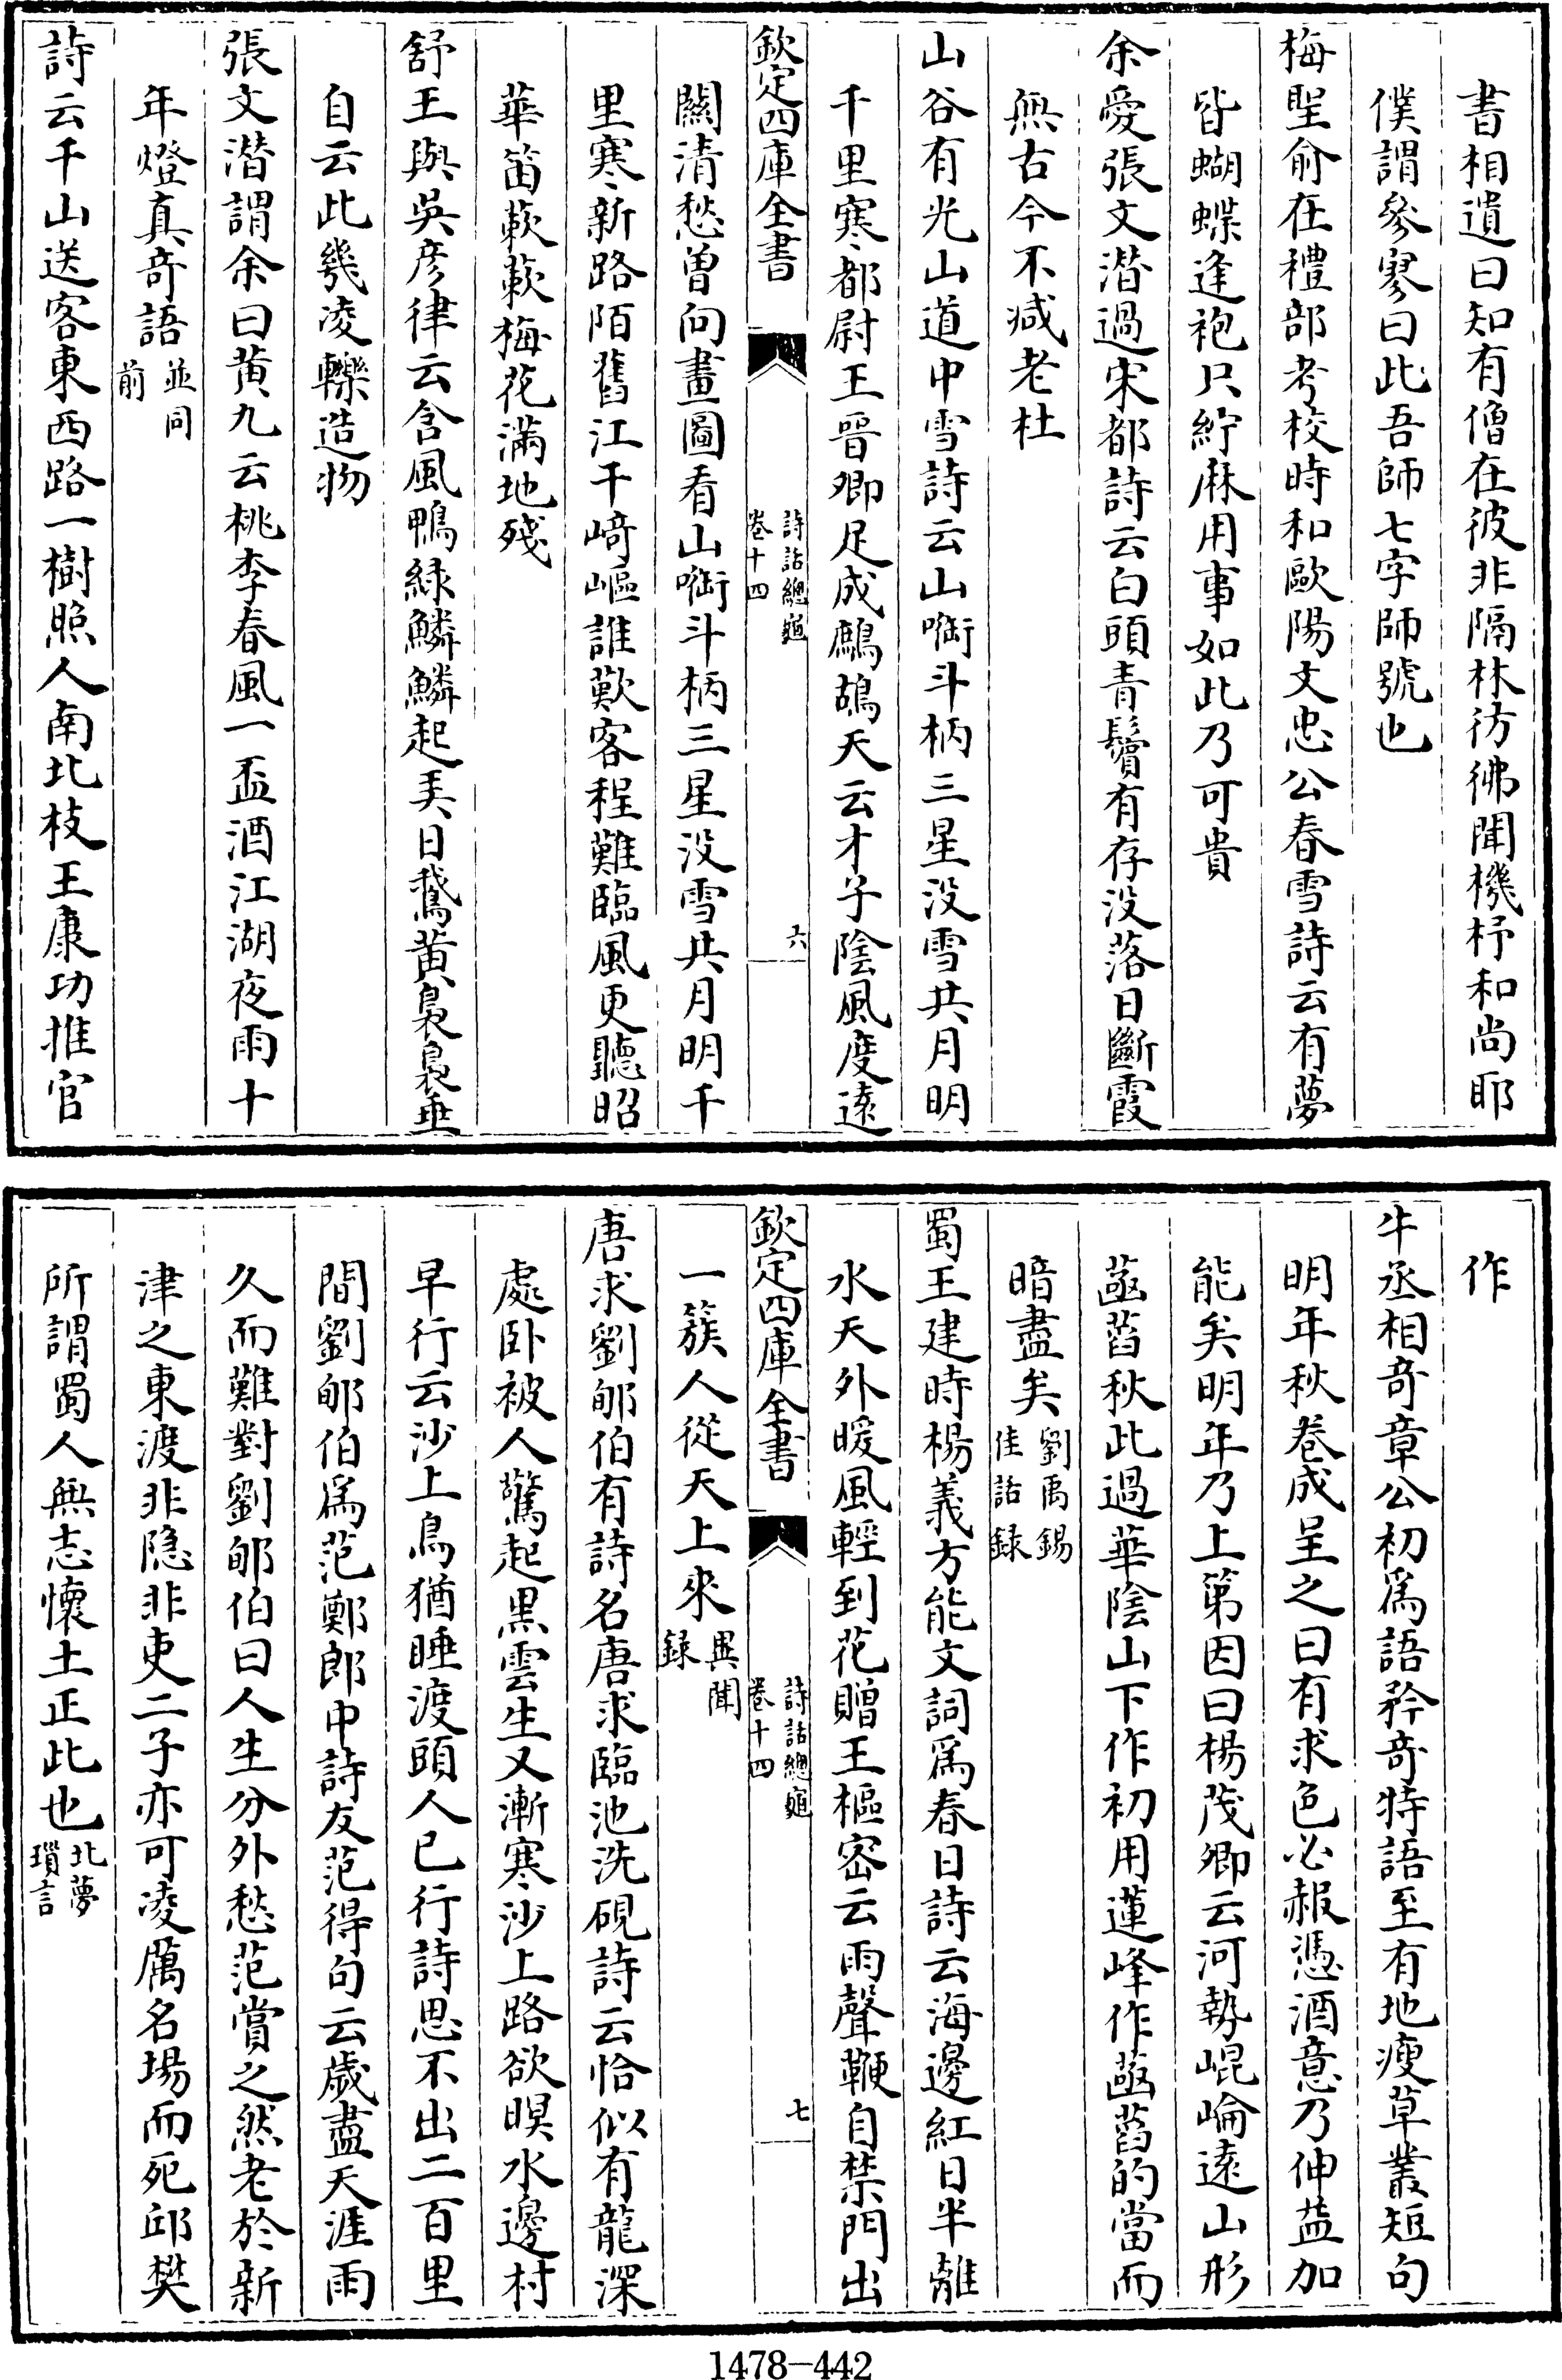 書相遺曰知有僧在彼非隔林彷彿聞機杼和尚耶
僕謂參寥曰此吾師七字師號也
梅聖俞在禮部考校時和歐陽文忠公春雪詩云有夢
皆蝴蝶逢袍只紵麻用事如此乃可貴
余愛張文潜過宋都詩云白頭青鬢有存没落日斷霞
無古今不减老杜
山谷有光山道中雪詩云山㘅斗柄三星没雪共月明
千里寒都尉王晉卿足成鷓鴣天云才子陰風度遠
欽定四庫全書
詩話總龜
卷十四
六
關清愁曽向畫圖看山㘅斗柄三星没雪共月明千
里寒新路陌舊江干崎嶇誰歎客程難臨風更聽昭
華笛蔌蔌梅花滿地殘
舒王與吳彦律云含風鴨緑鱗鱗起弄日鵞黄裊裊垂
自云此幾凌轢造物
張文潜謂余曰黄九云桃李春風一盃酒江湖夜雨十
年燈真奇語並同
前
詩云千山送客東西路一樹照人南北枝王康功推官
作
牛丞相奇章公初為語矜奇特語至有地瘦草叢短句
明年秋卷成呈之曰有求色必赧憑酒意乃伸益加
能矣明年乃上第因曰楊茂卿云河勢崐崘遠山形
菡萏秋此過華陰山下作初用蓮峰作菡萏的當而
暗盡矣劉禹錫
佳話録
蜀王建時楊義方能文詞為春日詩云海邊紅日半離
水天外暖風輕到花贈王樞密云雨聲鞭自禁門出
欽定四庫全書
詩話總龜
卷十四
七
一簇人從天上來異聞
録
唐求劉郇伯有詩名唐求臨池洗硯詩云恰似有龍深
處卧被人驚起黒雲生又漸寒沙上路欲暝水邊村
早行云沙上鳥猶睡渡頭人已行詩思不出二百里
間劉郇伯為范鄭郎中詩友范得句云歲盡天涯雨
久而難對劉郇伯曰人生分外愁范賞之然老於新
津之東渡非隐非吏二子亦可凌厲名場而死邱樊
所謂蜀人無志懷土正此也北夢
瑣言
1478-442